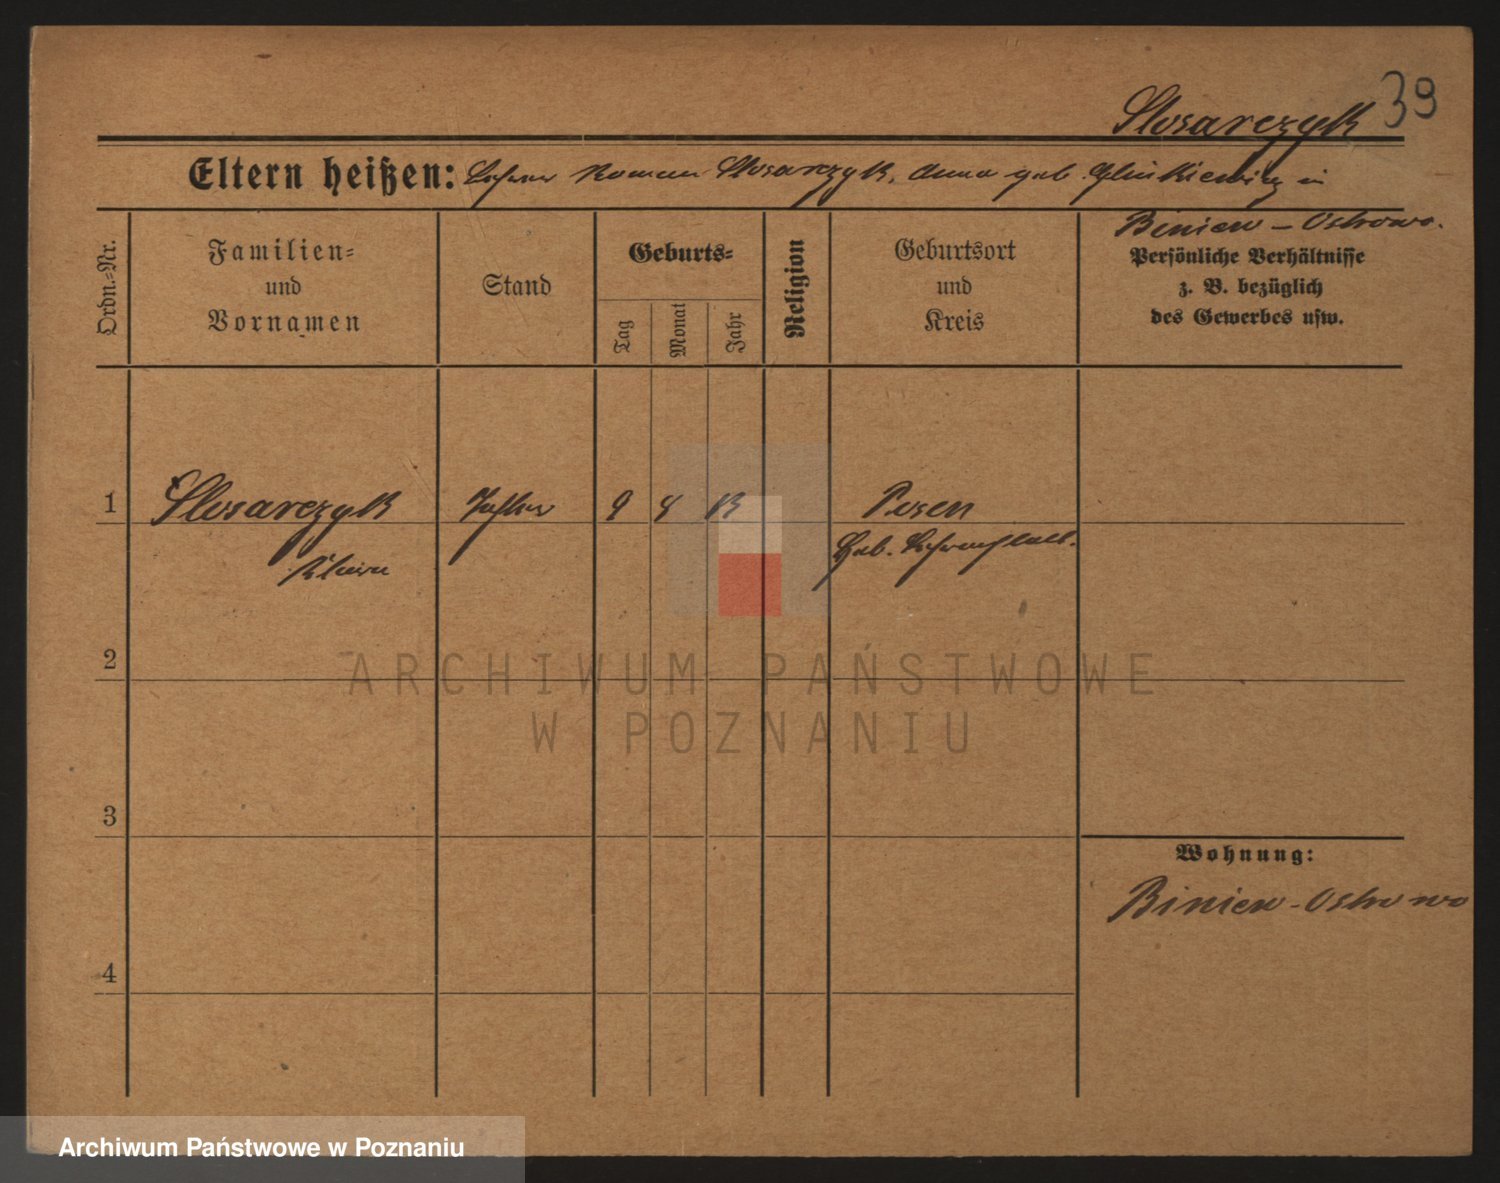 39
Slosarczyk
Eltern heißen: Lehrer Roman Slosarczyk, Anna geb. Glinkiewicz in
Biniew - Ostrowo.
Ordn.-Nr.
Familien-
und
Vornamen
Stand
Geburts-
Tag
Monat
Jahr
Religion
Geburtsort
und
Kreis
Persönliche Verhältnisse
z. B. bezüglich
des Gewerbes usw.
1 Slosarczyk 9 8 13 Posen
Geb.
2
3
4
Wohnung:
Biniew - Ostrowo
ARCHIWUM PAŃSTWOWE
W POZNANIU
Archiwum Państwowe w Poznaniu